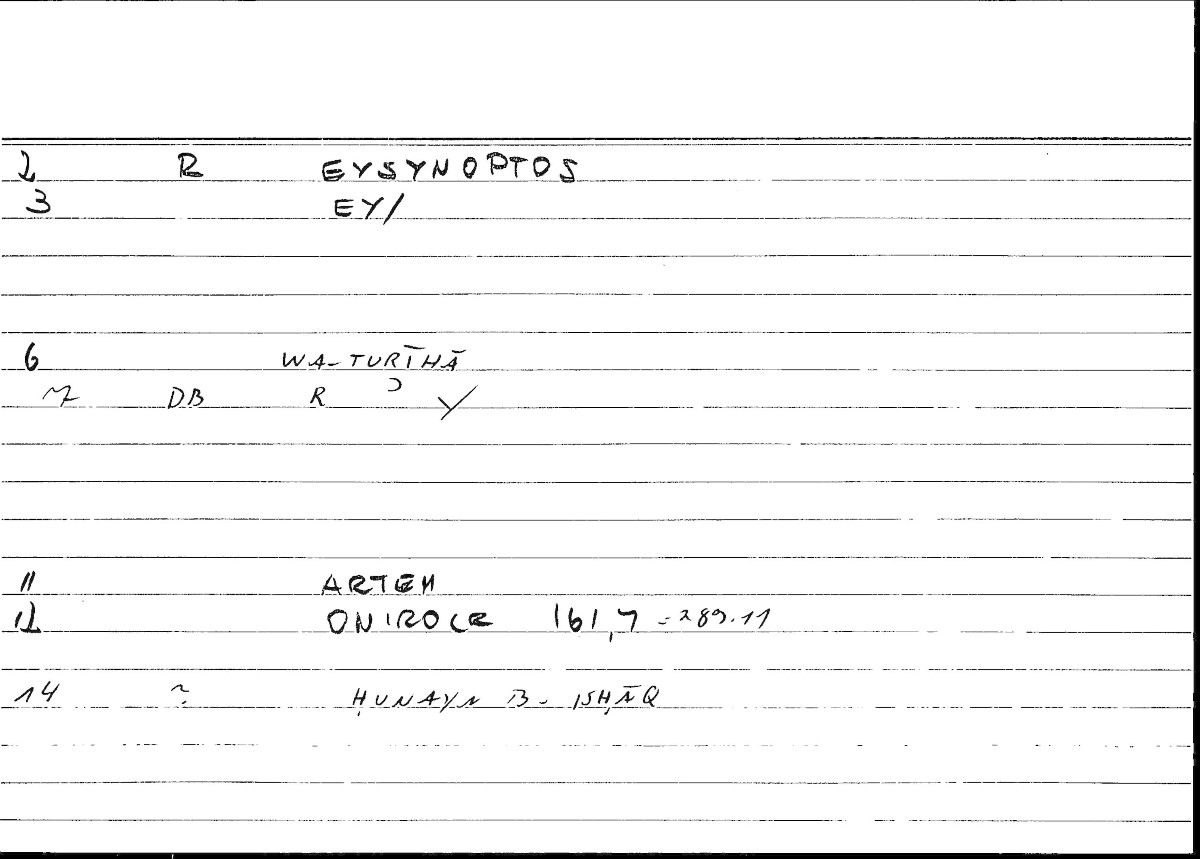 2 R EYSYNOPTOS
3 EY/
6 WA-TURĪHĀ
7 DB R ʾ Y
11 ARTEM
12 ONIROCR 161,7 = 289.11
14 ~ ḤUNAYN B. ISḤĀQ